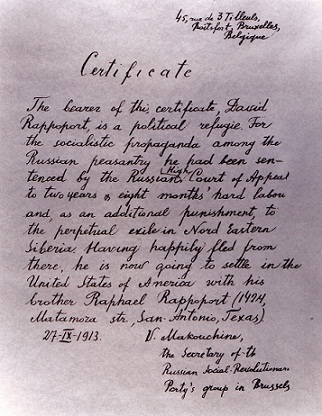 45, rue de 3 Tilleuls,
Boitsfort, Bruxelles,
Belgique
Certificate
The bearer of this certificate, David
Rappoport, is a political refugie. For
the socialistic propaganda among the
Russian peasantry he had been sen-
tenced by the Russian High Court of Appeal
to two years & eight months' hard labou
and, as an additional punishment, to
the perpetual exile in Nord Eastern
Siberia. Having happily fled from
there, he is now going to settle in the
United States of America with his
brother Raphael Rappoport (1494,
Matamora str., San-Antonio, Texas)
27-IX-1913. V. Makouchine,
the Secretary of th
Russian Social-Revolutionar.
Party's group in Brussels